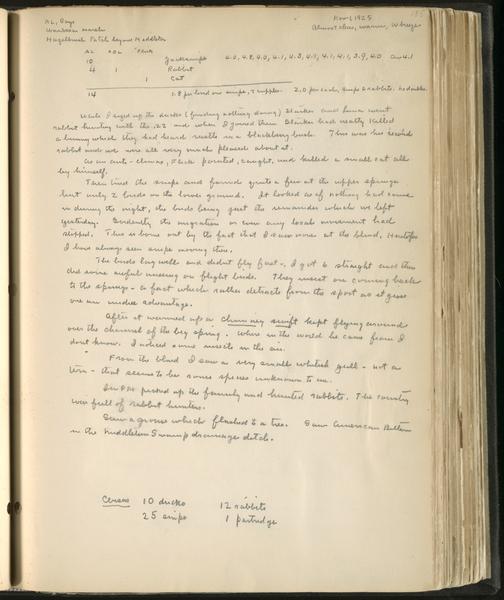 AL, Boys
Nov 1, 1925
Waubesa Marsh
Almost clear, warm, W breeze
Hazelbrush Patch beyond Middleton
AL BOL Flick
10 Jacksnipe 4.0, 4.8, 4.0, 4.1, 4.3, 4.1, 4.1, 4.1, 3.9, 4.0 Av 4.1
4 1 Rabbit
1 Cat
14 1.8 per bird on snipe, 2 cripples. 2.0 per cash, snipe & rabbits. No doubles.
While I sized up the ducks (finding nothing doing) Starker and Luna went
rabbit hunting with the .22 and when I joined them Starker had neatly killed
a bunny which they had heard rustle in a blackberry bush. This was his second
rabbit and we were all very much pleased about it.
As an anti-climax, Flick pointed, caught, and killed a small cat all
by himself.
Then tried the snipe and found quite a few at the upper springs
but only 2 birds on the lower ground. It looked as if nothing had come
in during the night, the birds being just the remainder which we left
yesterday. Evidently the migration or even any local movement had
stopped. This is borne out by the fact that I saw none at the blind. Heretofore
I have always seen snipe moving there.
The birds lay well and didnt fly fast -. I got 6 straight and then
did some awful missing on flight birds. They insist on coming back
to the springs - a fact which rather detracts from the sport as it gives
one an undue advantage.
After it warmed up a Chimney swift kept flying around
over the channel of the big spring. Where in the world he came from I
dont know. I noticed some insects in the air.
From the blind I saw a very small whitish gull - not a
tern - that seems to be some species unknown to me.
In PM picked up the family and hunted rabbits. The country
was full of rabbit hunters.
Saw a grouse which flushed to a tree. Saw American Bittern
in the Middleton Swamp drainage ditch.
Census 10 ducks 12 rabbits
25 snipe 1 partridge